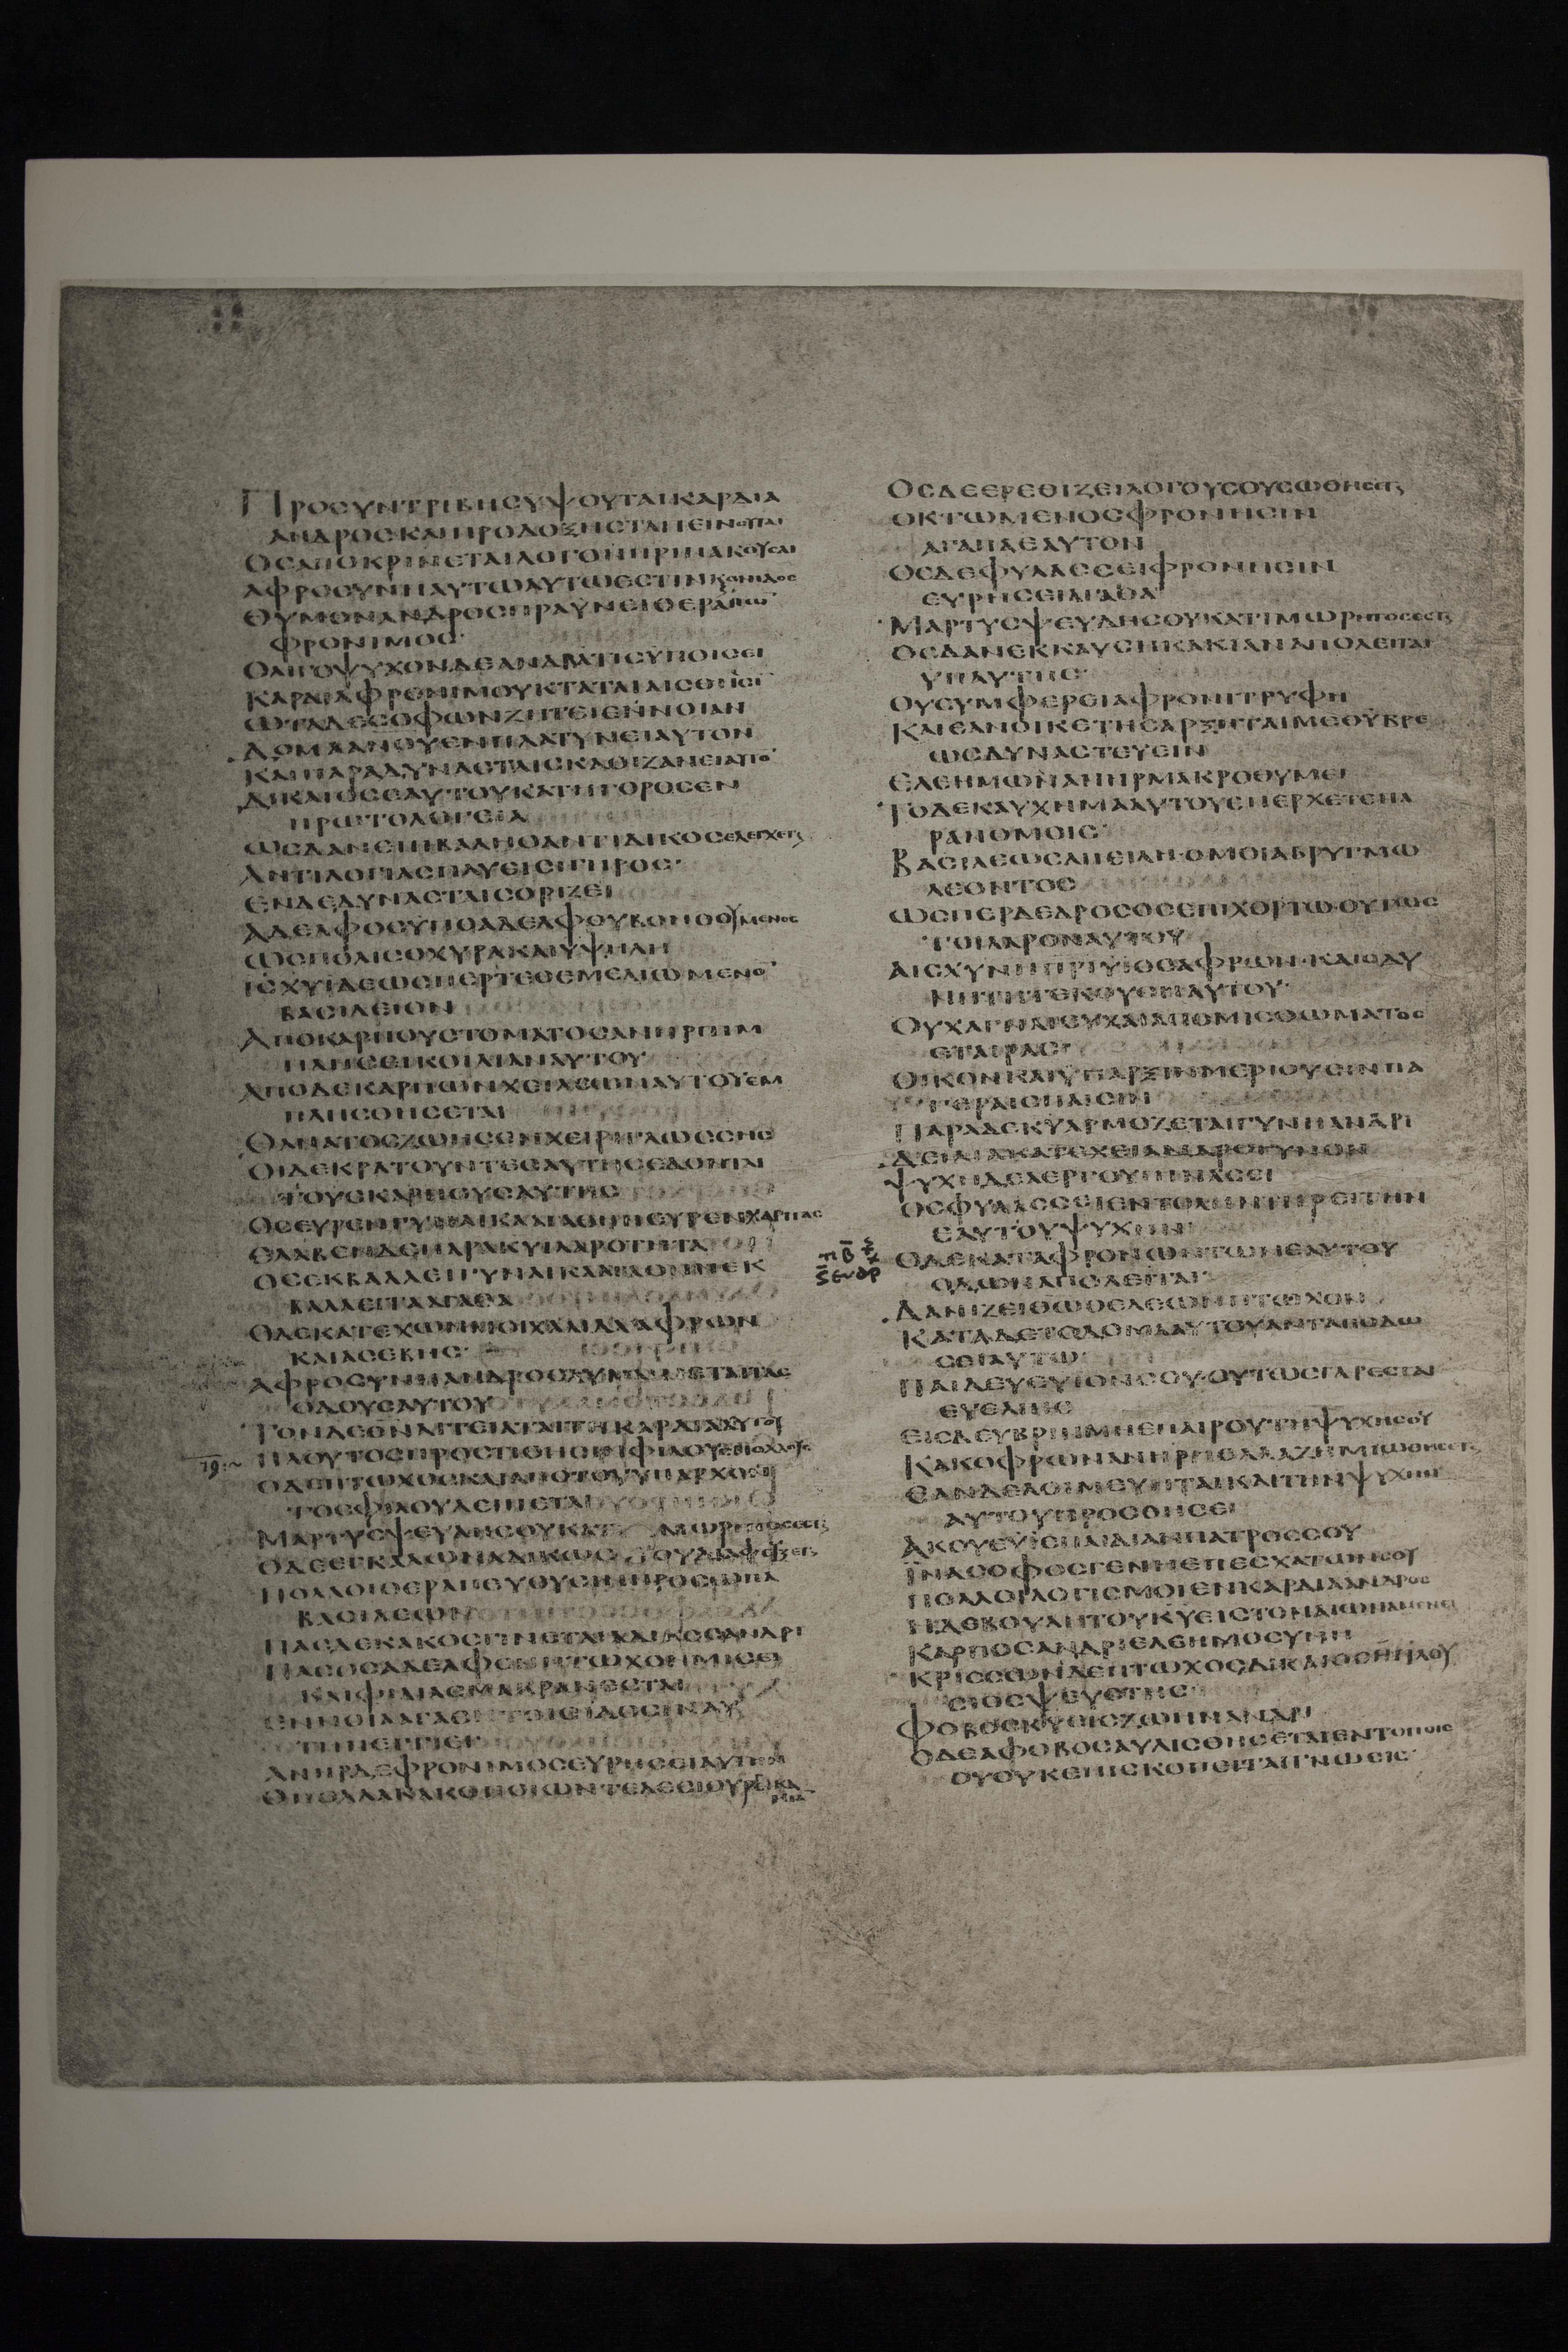 ΠΡΟΣΥΝΤΡΙΒΗΣΥΨΟΥΤΑΙΚΑΡΔΙΑ
ΑΝΔΡΟΣΚΑΙΠΡΟΔΟΞΗΣΤΑΠΕΙΝΟΥΤΑΙ
ΟΣΑΠΟΚΡΙΝΕΤΑΙΛΟΓΟΝΠΡΙΝΑΚΟΥΣΑΙ
ΑΦΡΟΣΥΝΗΑΥΤΩΑΥΤΩΕΣΤΙΝ
ΘΥΜΟΝΑΝΔΡΟΣΠΡΑΥΝΕΙΘΕΡΑΠΩ
ΦΡΟΝΙΜΟΣ
ΚΑΡΔΙΑΦΡΟΝΙΜΟΥΚΤΑΤΑΙΑΙΣΘΗΣΙ
ΩΤΑΔΕΣΟΦΩΝΖΗΤΕΙΕΝΝΟΙΑΝ
ΔΟΜΑΑΝΟΥΕΝΠΛΑΤΥΝΕΙΑΥΤΟΝ
ΚΑΙΠΑΡΑΔΥΝΑΣΤΑΙΣΚΑΘΙΖΑΝΕΙΑΥΤΟ
ΔΙΚΑΙΟΣΕΑΥΤΟΥΚΑΤΗΓΟΡΟΣΕΝ
ΠΡΩΤΟΛΟΓΕΙΑ
ΩΣΔΑΝΕΠΙΒΑΛΗΟΑΝΤΙΔΙΚΟΣΕΛΕΓΧΕΤΑΙ
ΑΝΤΙΛΟΓΙΑΣΠΑΥΕΙΣΙΓΗΡΟΣ
ΕΝΔΕΔΥΝΑΣΤΑΙΣΟΡΙΖΕΙ
ΑΔΕΛΦΟΣΥΠΟΑΔΕΛΦΟΥΒΟΗΘΟΥΜΕΝΟΣ
ΩΣΠΟΛΙΣΟΧΥΡΑΚΑΙΥΨΗΛΗ
ΙΣΧΥΙΔΕΩΣΠΕΡΤΕΘΕΜΕΛΙΩΜΕΝΟ
ΒΑΣΙΛΕΙΟΝ
ΑΠΟΚΑΡΠΟΥΣΤΟΜΑΤΟΣΑΝΗΡΠΙΜ
ΠΛΗΣΕΙΚΟΙΛΙΑΝΑΥΤΟΥ
ΑΠΟΔΕΚΑΡΠΩΝΧΕΙΛΕΩΝΑΥΤΟΥΕΜ
ΠΛΗΣΘΗΣΕΤΑΙ
ΘΑΝΑΤΟΣΖΩΗΣΕΝΧΕΙΡΙΓΛΩΣΣΗΣ
ΟΙΔΕΚΡΑΤΟΥΝΤΕΣΑΥΤΗΣΕΔΟΝΤΑΙ
ΤΟΥΣΚΑΡΠΟΥΣΑΥΤΗΣ
ΟΣΕΥΡΕΝΓΥΝΑΙΚΑΑΓΑΘΗΝΕΥΡΕΝΧΑΡΙΤΑΣ
ΕΛΑΒΕΝΔΕΠΑΡΑΚΥΙΛΑΡΟΤΗΤΑ
ΟΣΕΚΒΑΛΛΕΙΓΥΝΑΙΚΑΑΓΑΘΗΝΕΚ
ΒΑΛΛΕΙΤΑΑΓΑΘΑ
ΟΔΕΚΑΤΕΧΩΝΜΟΙΧΑΛΙΔΑΑΦΡΩΝ
ΚΑΙΑΣΕΒΗΣ
ΑΦΡΟΣΥΝΗΑΝΔΡΟΣΛΥΜΑΙΝΕΤΑΙΤΑΣ
ΟΔΟΥΣΑΥΤΟΥ
ΠΛΟΥΤΟΣΠΡΟΣΤΙΘΗΣΙΦΙΛΟΥΣΠΟΛΛΟΥΣ
ΠΟΛΛΟΙΘΕΡΑΠΕΥΟΥΣΙΝΠΡΟΣΩΠΑ
ΒΑΣΙΛΕΩΝ
ΠΑΣΔΕΚΑΚΟΣΓΙΝΕΤΑΙΟΝΕΙΔΟΣΑΝΔΡΙ
ΚΑΙΦΙΛΙΑΣΜΑΚΡΑΝΕΣΤΑΙ
ΑΝΗΡΔΕΦΡΟΝΙΜΟΣΕΥΡΗΣΕΙΑΥΤΗΝ
ΟΣΔΕΕΡΕΘΙΖΕΙΛΟΓΟΥΣΟΥΣΩΘΗΣΕΤΑΙ
ΟΚΤΩΜΕΝΟΣΦΡΟΝΗΣΙΝ
ΑΓΑΠΑΕΑΥΤΟΝ
ΟΣΔΕΦΥΛΑΣΣΕΙΦΡΟΝΗΣΙΝ
ΕΥΡΗΣΕΙΑΓΑΘΑ
ΜΑΡΤΥΣΨΕΥΔΗΣΟΥΚΑΤΙΜΩΡΗΤΟΣΕΣΤΑΙ
ΟΣΔΑΝΕΚΚΑΥΣΗΚΑΚΙΑΝΑΠΟΛΕΙΤΑΙ
ΥΠΑΥΤΗΣ
ΟΥΣΥΜΦΕΡΕΙΑΦΡΟΝΙΤΡΥΦΗ
ΚΑΙΕΑΝΟΙΚΕΤΗΣΑΡΞΗΤΑΙΜΕΘΥΒΡΕ
ΩΣΔΥΝΑΣΤΕΥΕΙΝ
ΕΛΕΗΜΩΝΑΝΗΡΜΑΚΡΟΘΥΜΕΙ
ΤΟΔΕΚΑΥΧΗΜΑΑΥΤΟΥΕΠΕΡΧΕΤΕΠΑ
ΡΑΝΟΜΟΙΣ
ΒΑΣΙΛΕΩΣΑΠΕΙΛΗΟΜΟΙΑΒΡΥΓΜΩ
ΛΕΟΝΤΟΣ
ΩΣΠΕΡΔΕΔΡΟΣΟΣΕΠΙΧΟΡΤΩΟΥΤΩΣ
ΤΟΙΛΑΡΟΝΑΥΤΟΥ
ΑΙΣΧΥΝΗΠΡΙΥΙΟΣΑΦΡΩΝ·ΚΑΙΟΔΥ
ΝΗΤΗΤΕΚΟΥΣΗΑΥΤΟΥ
ΟΥΧΑΓΝΑΙΕΥΧΑΙΑΠΟΜΙΣΘΩΜΑΤΟΣ
ΕΤΑΙΡΑΣ
ΟΙΚΟΝΚΑΙΥΠΑΡΞΙΝΜΕΡΙΟΥΣΙΝΠΑ
ΤΕΡΑΙΣΠΑΙΣΙΝ
ΠΑΡΑΔΕΚΥΑΡΜΟΖΕΤΑΙΓΥΝΗΑΝΔΡΙ
ΔΕΙΛΙΑΚΑΤΕΧΕΙΑΝΔΡΟΓΥΝΟΝ
ΨΥΧΗΔΕΑΕΡΓΟΥΠΙΝΑΣΕΙ
ΟΣΦΥΛΑΣΣΕΙΕΝΤΟΛΗΝΤΗΡΕΙΤΗΝ
ΕΑΥΤΟΥΨΥΧΗΝ
ΟΔΕΚΑΤΑΦΡΟΝΩΝΤΩΝΕΑΥΤΟΥ
ΟΔΩΝΑΠΟΛΕΙΤΑΙ
ΔΑΝΙΖΕΙΘΩΟΕΛΕΩΝΠΤΩΧΟΝ
ΚΑΤΑΔΕΤΟΔΟΜΑΑΥΤΟΥΑΝΤΑΠΟΔΩ
ΣΕΙΑΥΤΩ
ΠΑΙΔΕΥΕΥΙΟΝΣΟΥ·ΟΥΤΩΣΓΑΡΕΣΤΑΙ
ΕΥΕΛΠΙΣ
ΕΙΣΔΕΥΒΡΙΝΜΗΕΠΑΙΡΟΥΤΗΨΥΧΗΣΟΥ
ΚΑΚΟΦΡΩΝΑΝΗΡΠΟΛΛΑΖΗΜΙΩΘΗΣΕΤΑΙ
ΕΑΝΔΕΛΟΙΜΕΥΗΤΑΙΚΑΙΤΗΝΨΥΧΗΝ
ΑΥΤΟΥΠΡΟΣΘΗΣΕΙ
ΑΚΟΥΕΥΙΕΠΑΙΔΙΑΝΠΑΤΡΟΣΣΟΥ
ΙΝΑΣΟΦΟΣΓΕΝΗΕΠΕΣΧΑΤΩΝΣΟΥ
ΠΟΛΛΟΙΛΟΓΙΣΜΟΙΕΝΚΑΡΔΙΑΑΝΔΡΟΣ
ΗΔΕΒΟΥΛΗΤΟΥΚΥΕΙΣΤΟΝΑΙΩΝΑΜΕΝΕΙ
ΚΑΡΠΟΣΑΝΔΡΙΕΛΕΗΜΟΣΥΝΗ
ΚΡΙΣΣΩΝΔΕΠΤΩΧΟΣΔΙΚΑΙΟΣΗΠΛΟΥ
ΣΙΟΣΨΕΥΣΤΗΣ
ΦΟΒΟΣΚΥΕΙΣΖΩΗΝΑΝΔΡΙ
ΟΔΕΑΦΟΒΟΣΑΥΛΙΣΘΗΣΕΤΑΙΕΝΤΟΠΟΙΣ
ΟΥΟΥΚΕΠΙΣΚΟΠΕΙΤΑΙΓΝΩΣΙΣ